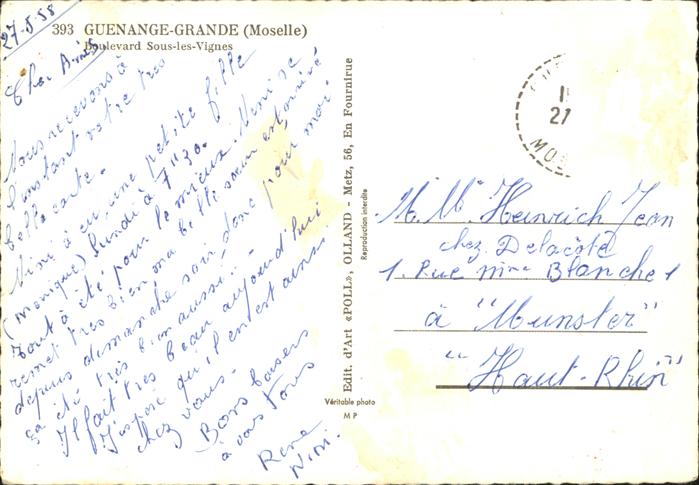 27-5-58
393 GUENANGE-GRANDE (Moselle)
Boulevard Sous-les-Vignes
Cher Amis
Nous recevons à
l'instant votre très
belle carte.
Mimi à eu une petite fille
(monique) lundi à 7h30.
tout à été pour le mieux. Mimi se
remet très bien ma belle sœur est arrivé
depuis dimanche soir donc pour moi
ça été très bien aussi.
Il fait très beau aujourd'hui
J'espère qu'il en est ainsi
chez vous.
Bons baisers
à vous tous
René
Mimi.
Edit. d'Art «POLL», OLLAND - Metz, 56, En Fournirue
Reproduction interdite
Véritable photo
M P
27
M. Mme Heinrich Jean
chez Delacôte
1. Rue Mme Blanche 1
à "Munster"
"Haut-Rhin"